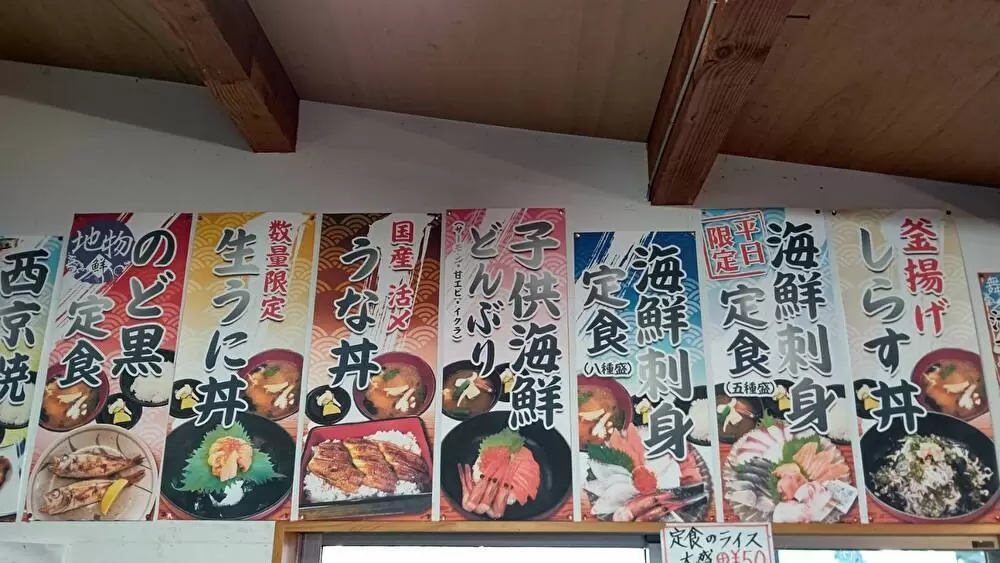 西京焼
地物
鮮
のど黒
定食
数量限定
生うに丼
国産 活〆
うな丼
子供海鮮
どんぶり
(サーモン・甘エビ・イクラ)
海鮮刺身
定食
(八種盛)
平日
限定
海鮮刺身
定食
(五種盛)
釜揚げ
しらす丼
定食のライス
大盛 ¥50